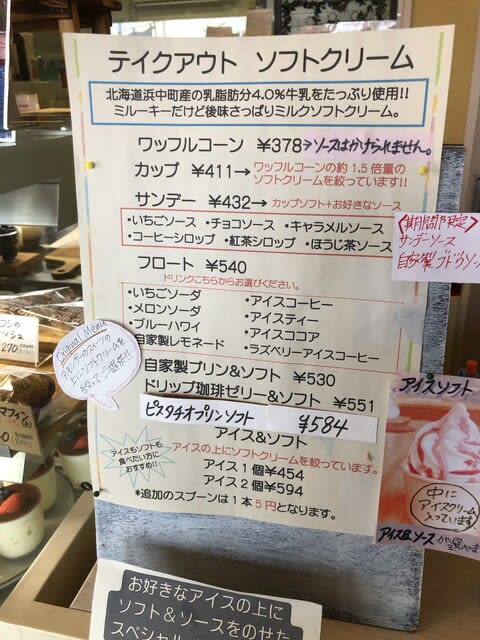 テイクアウト ソフトクリーム
北海道浜中町産の乳脂肪分4.0%牛乳をたっぷり使用!!
ミルキーだけど後味さっぱりミルクソフトクリーム。
ワッフルコーン ¥378→ソースはかけられません。
カップ ¥411→ワッフルコーンの約1.5倍量の
ソフトクリームを絞っています!!
サンデー ¥432→カップソフト+お好きなソース
・いちごソース ・チョコソース ・キャラメルソース
・コーヒーシロップ ・紅茶シロップ ・ほうじ茶ソース
<期間限定>
サンデーソース
自家製ブドウソー
フロート ¥540
ドリンクこちらからお選びください。
・いちごソーダ
・メロンソーダ
・ブルーハワイ
・自家製レモネード
・アイスコーヒー
・アイスティー
・アイスココア
・ラズベリーアイスコーヒー
Original Menu
上にソフトクリームを
自家製プリン&ソフト ¥530
ドリップ珈琲ゼリー&ソフト ¥551
ピスタチオプリンソフト ¥584
アイス&ソフト
アイスの上にソフトクリームを絞っています。
アイス1個¥454
アイス2個¥594
*追加のスプーンは1本5円となります。
アイスもソフトも
食べたい方に
おすすめ!!
アイスソフト
中に
アイスクリーム
入っています
アイス&ソース
お好きなアイスの上に
ソフト&ソースをのせた
270
マフィン